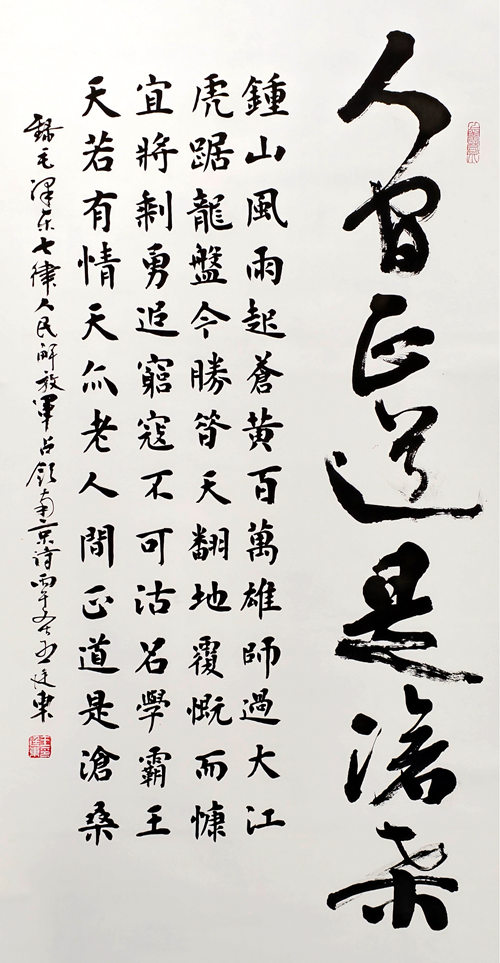 人间正道是滄桑
鍾山風雨起蒼黄百萬雄師過大江
虎踞龍盤今勝昔天翻地覆慨而慷
宜將剩勇追窮寇不可沽名學霸王
天若有情天亦老人間正道是滄桑
録毛澤东七律人民解放軍占領南京詩丙午王廷東